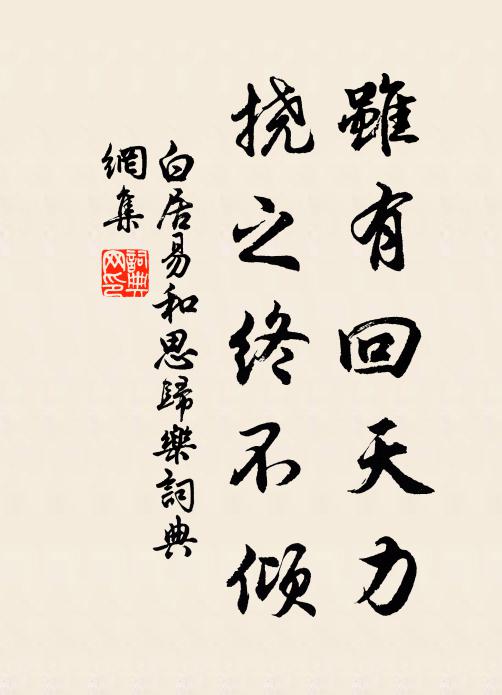 雖有回天力
撓之終不傾
白居易和思歸樂詞典
網集
詞典
网印